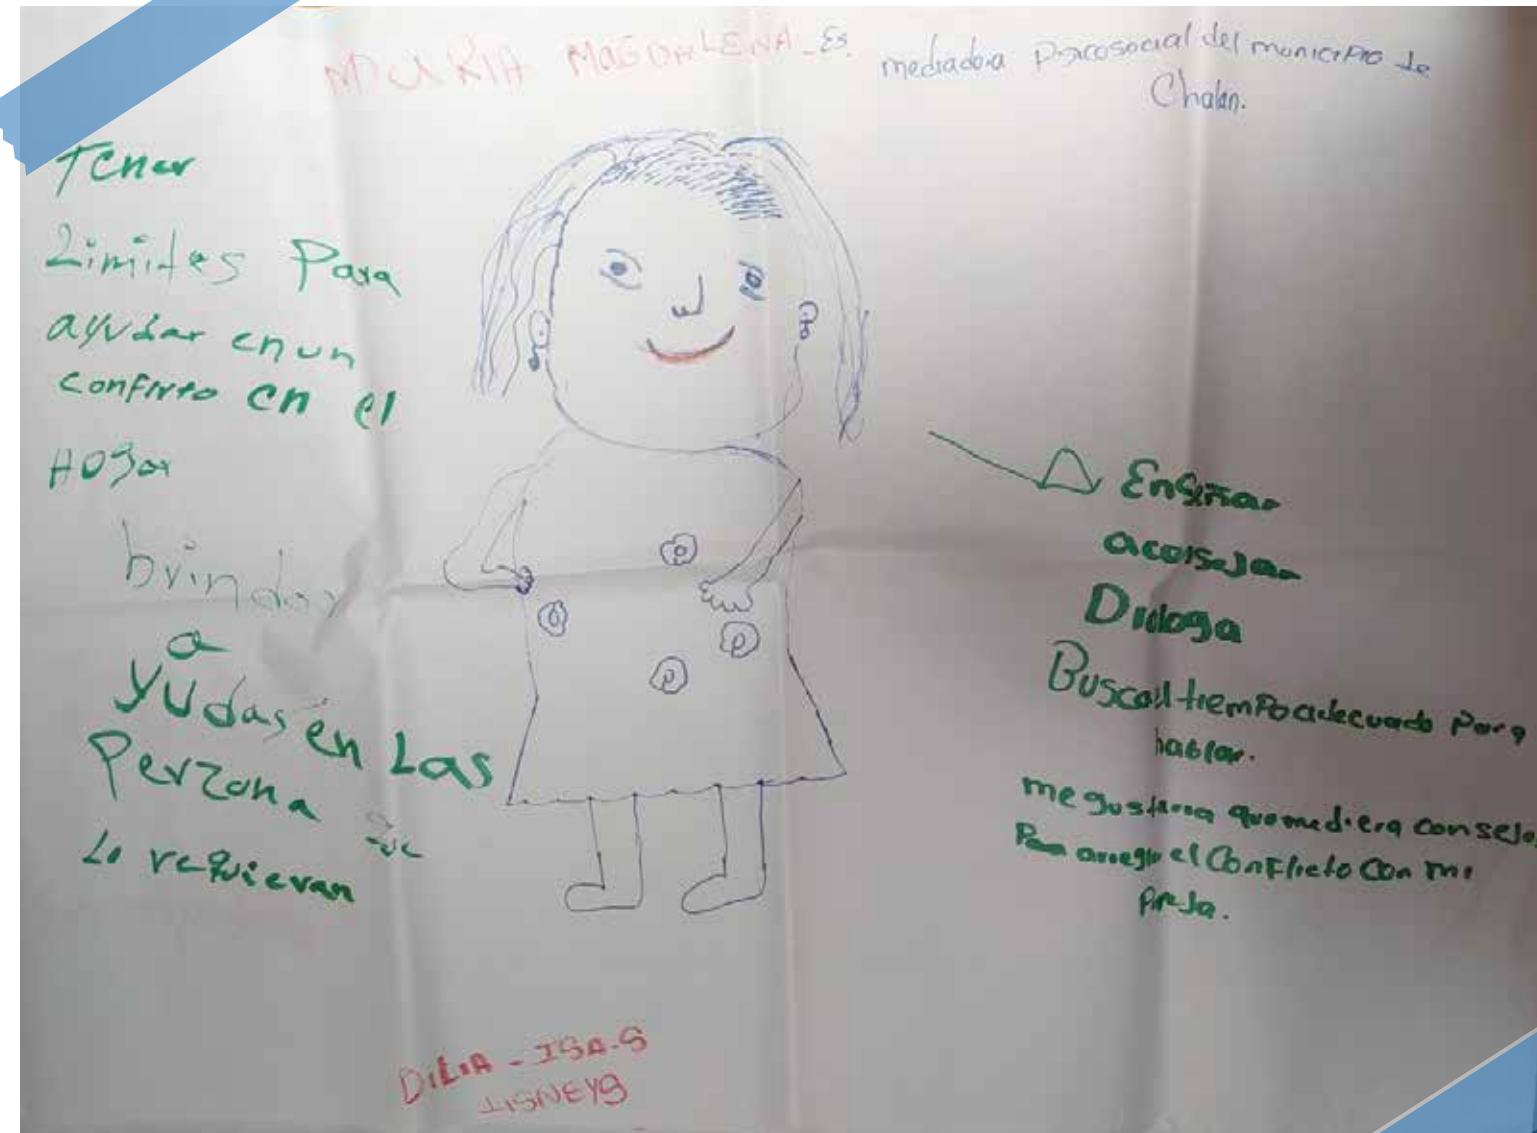 MARIA MAGDALENA - Es mediadora psicosocial del municipio de
Chalan.
Tener
Limites Para
ayudar en un
conflicto en el
HOgar
brindar
a
yudas en Las
Perzona que
Lo requieran
Enseñar
aconsejar
Dialoga
Busca el tiempo adecuado para
hablar.
me gustaria que me diera consejos
Para arreglar el conflicto con mi
pareja.
DILIA - ISA-S